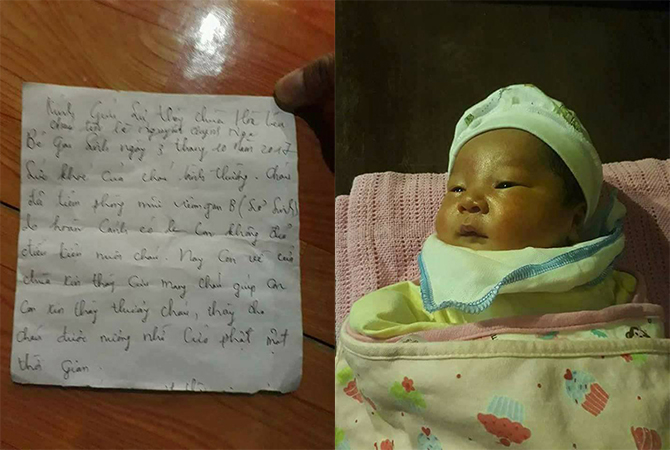 Kính Gửi Sư thầy chùa
cháu tên Lê Nguyệt
Bé Gái Sinh ngày 3 tháng 10 năm 2017
Sức khỏe của cháu bình thường. Cháu
đã tiêm phòng mũi viêm gan B (Sơ Sinh)
do hoàn Cảnh éo le Con không đủ
điều kiện nuôi cháu. Nay Con về cửa
chùa xin thầy Cưu mang cháu giúp Con
Con xin thầy thương cháu, thầy cho
cháu được nương nhờ Cửa phật một
thời Gian.